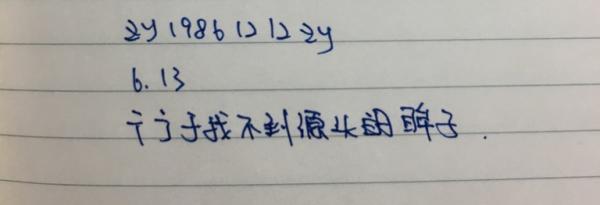 zy19861212zy
6.13
亍亍于我不到源头的眸子.